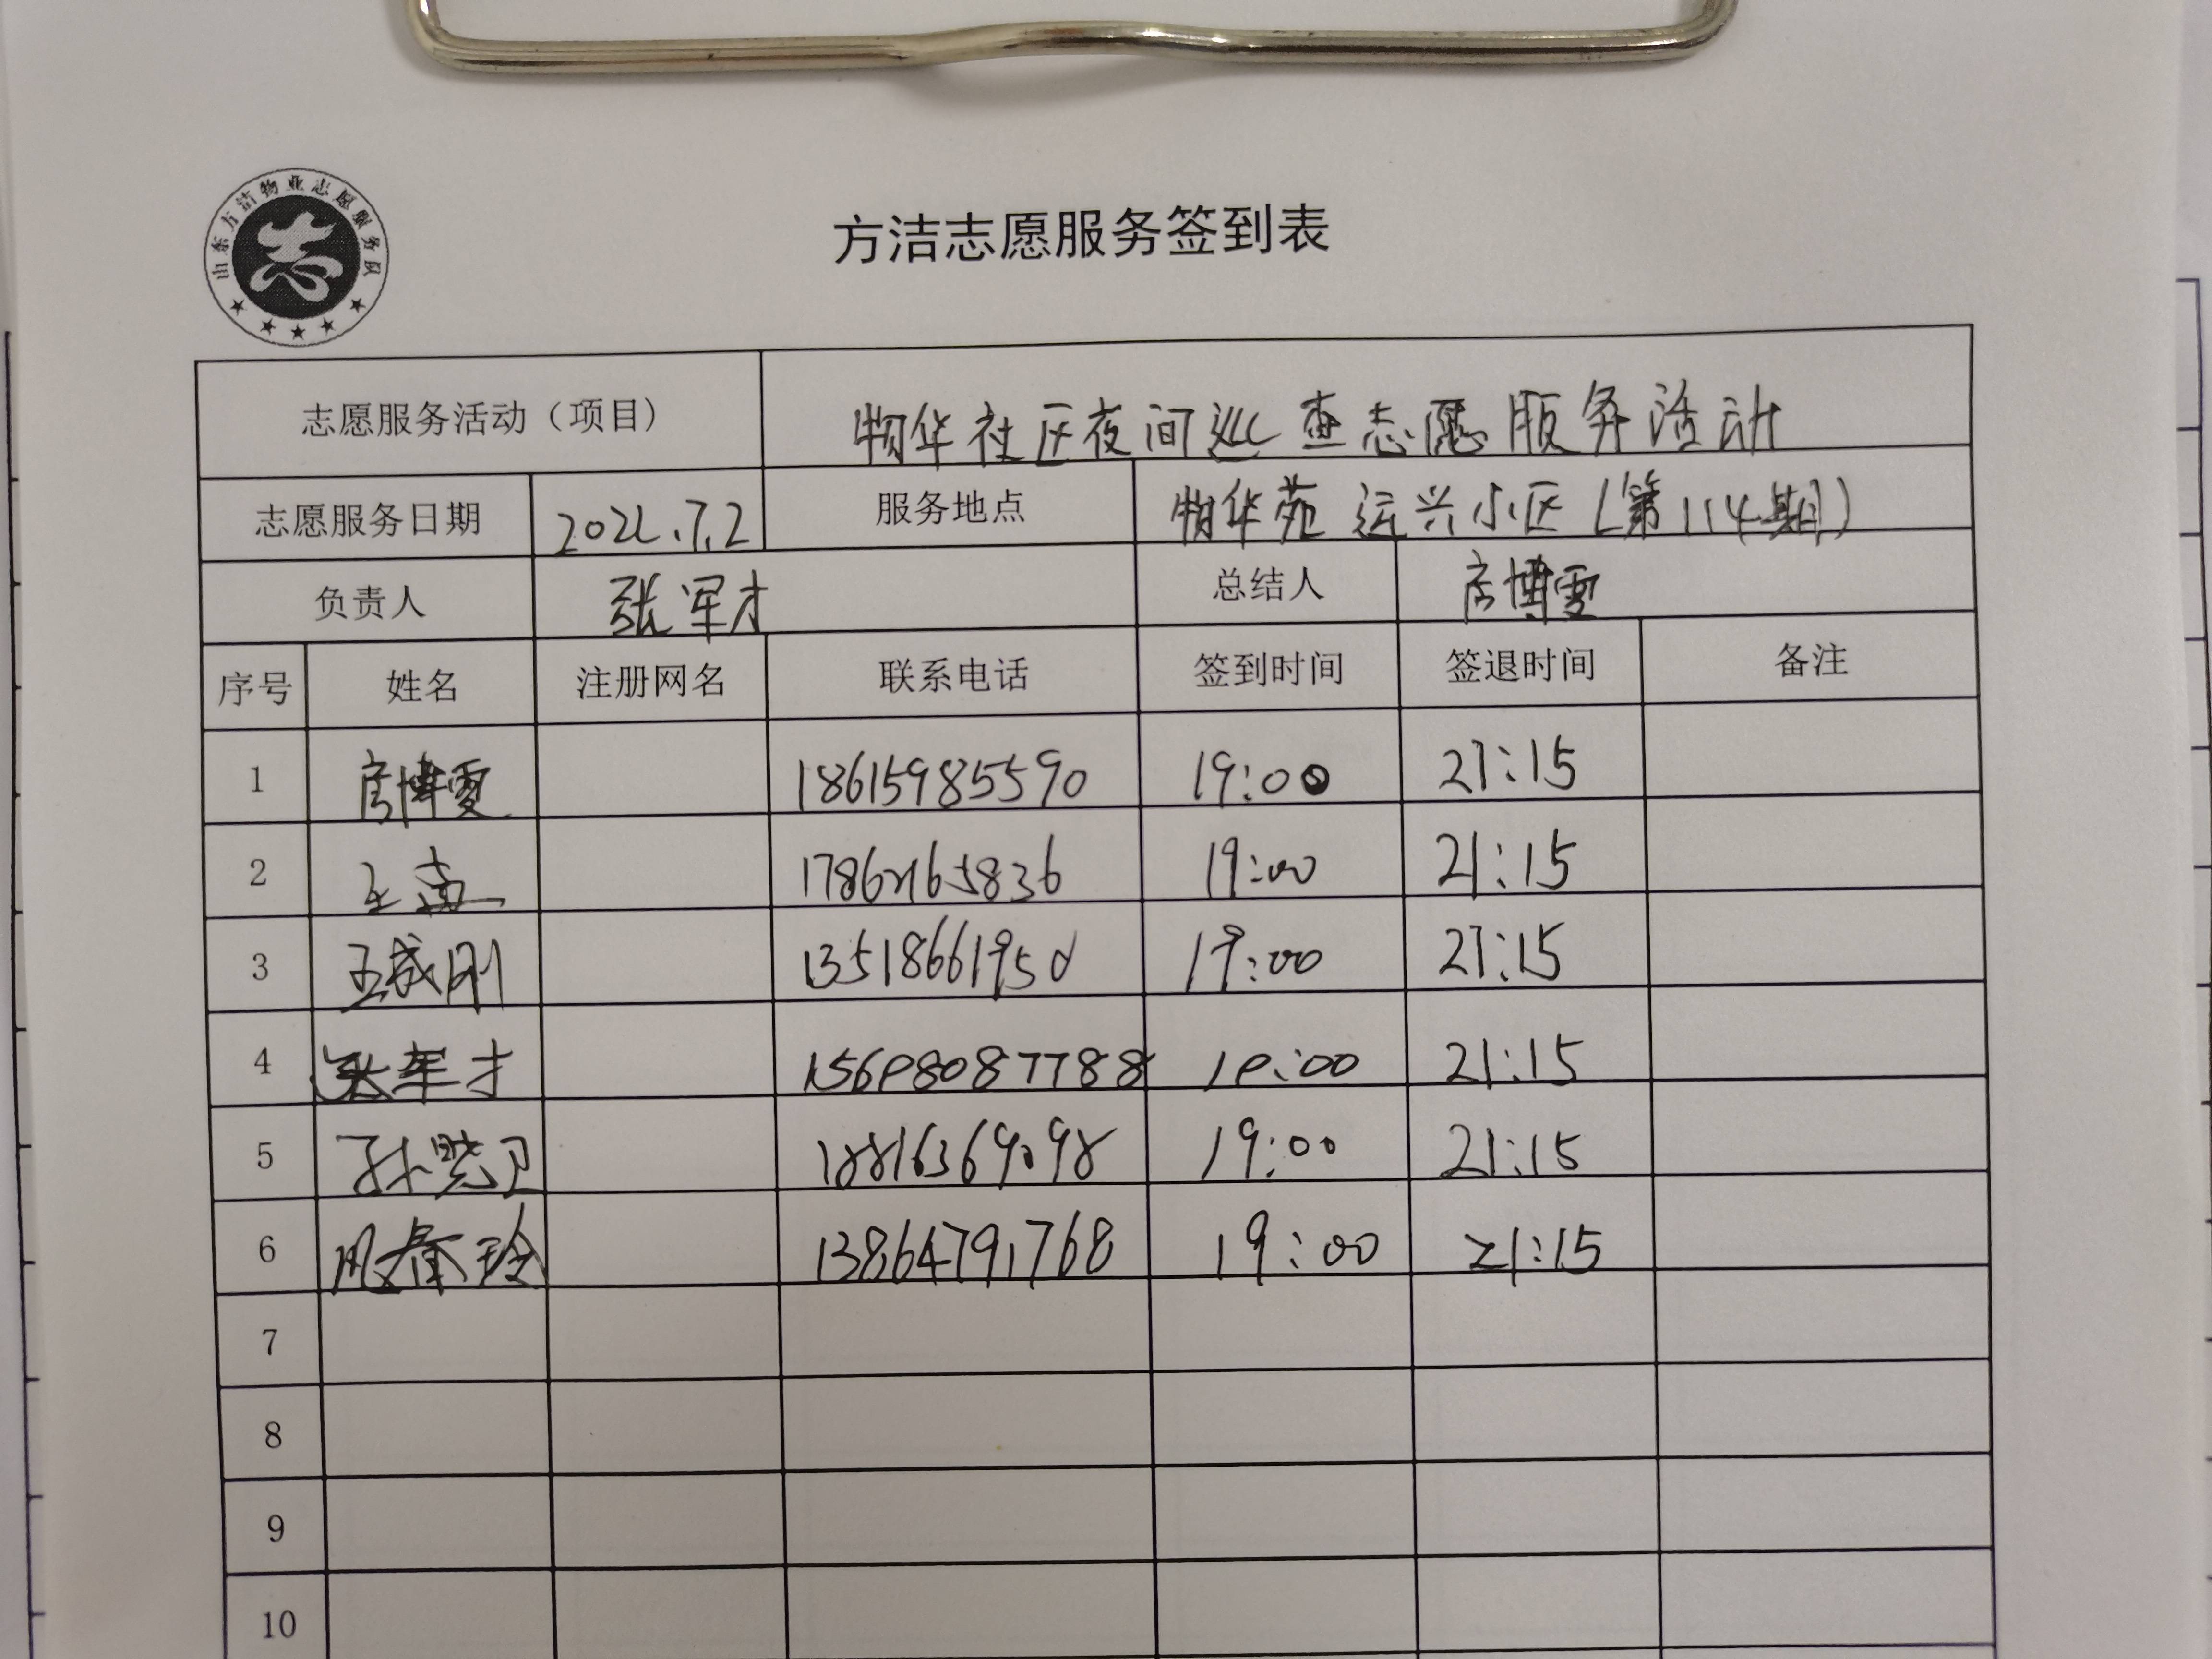 山东方洁物业志愿服务队
方洁志愿服务签到表
志愿服务活动（项目） 物华社区夜间巡查志愿服务活动
志愿服务日期 2022.7.2 服务地点 物华苑 远兴小区（第114期）
负责人 张军才 总结人 房博雯
序号 姓名 注册网名 联系电话 签到时间 签退时间 备注
1 房博雯 18615985590 19:00 21:15
2 17862165836 19:00 21:15
3 王成刚 13518661950 19:00 21:15
4 张军才 15698087788 19:00 21:15
5 孙晓卫 18816369098 19:00 21:15
6 13864791768 19:00 21:15
7
8
9
10